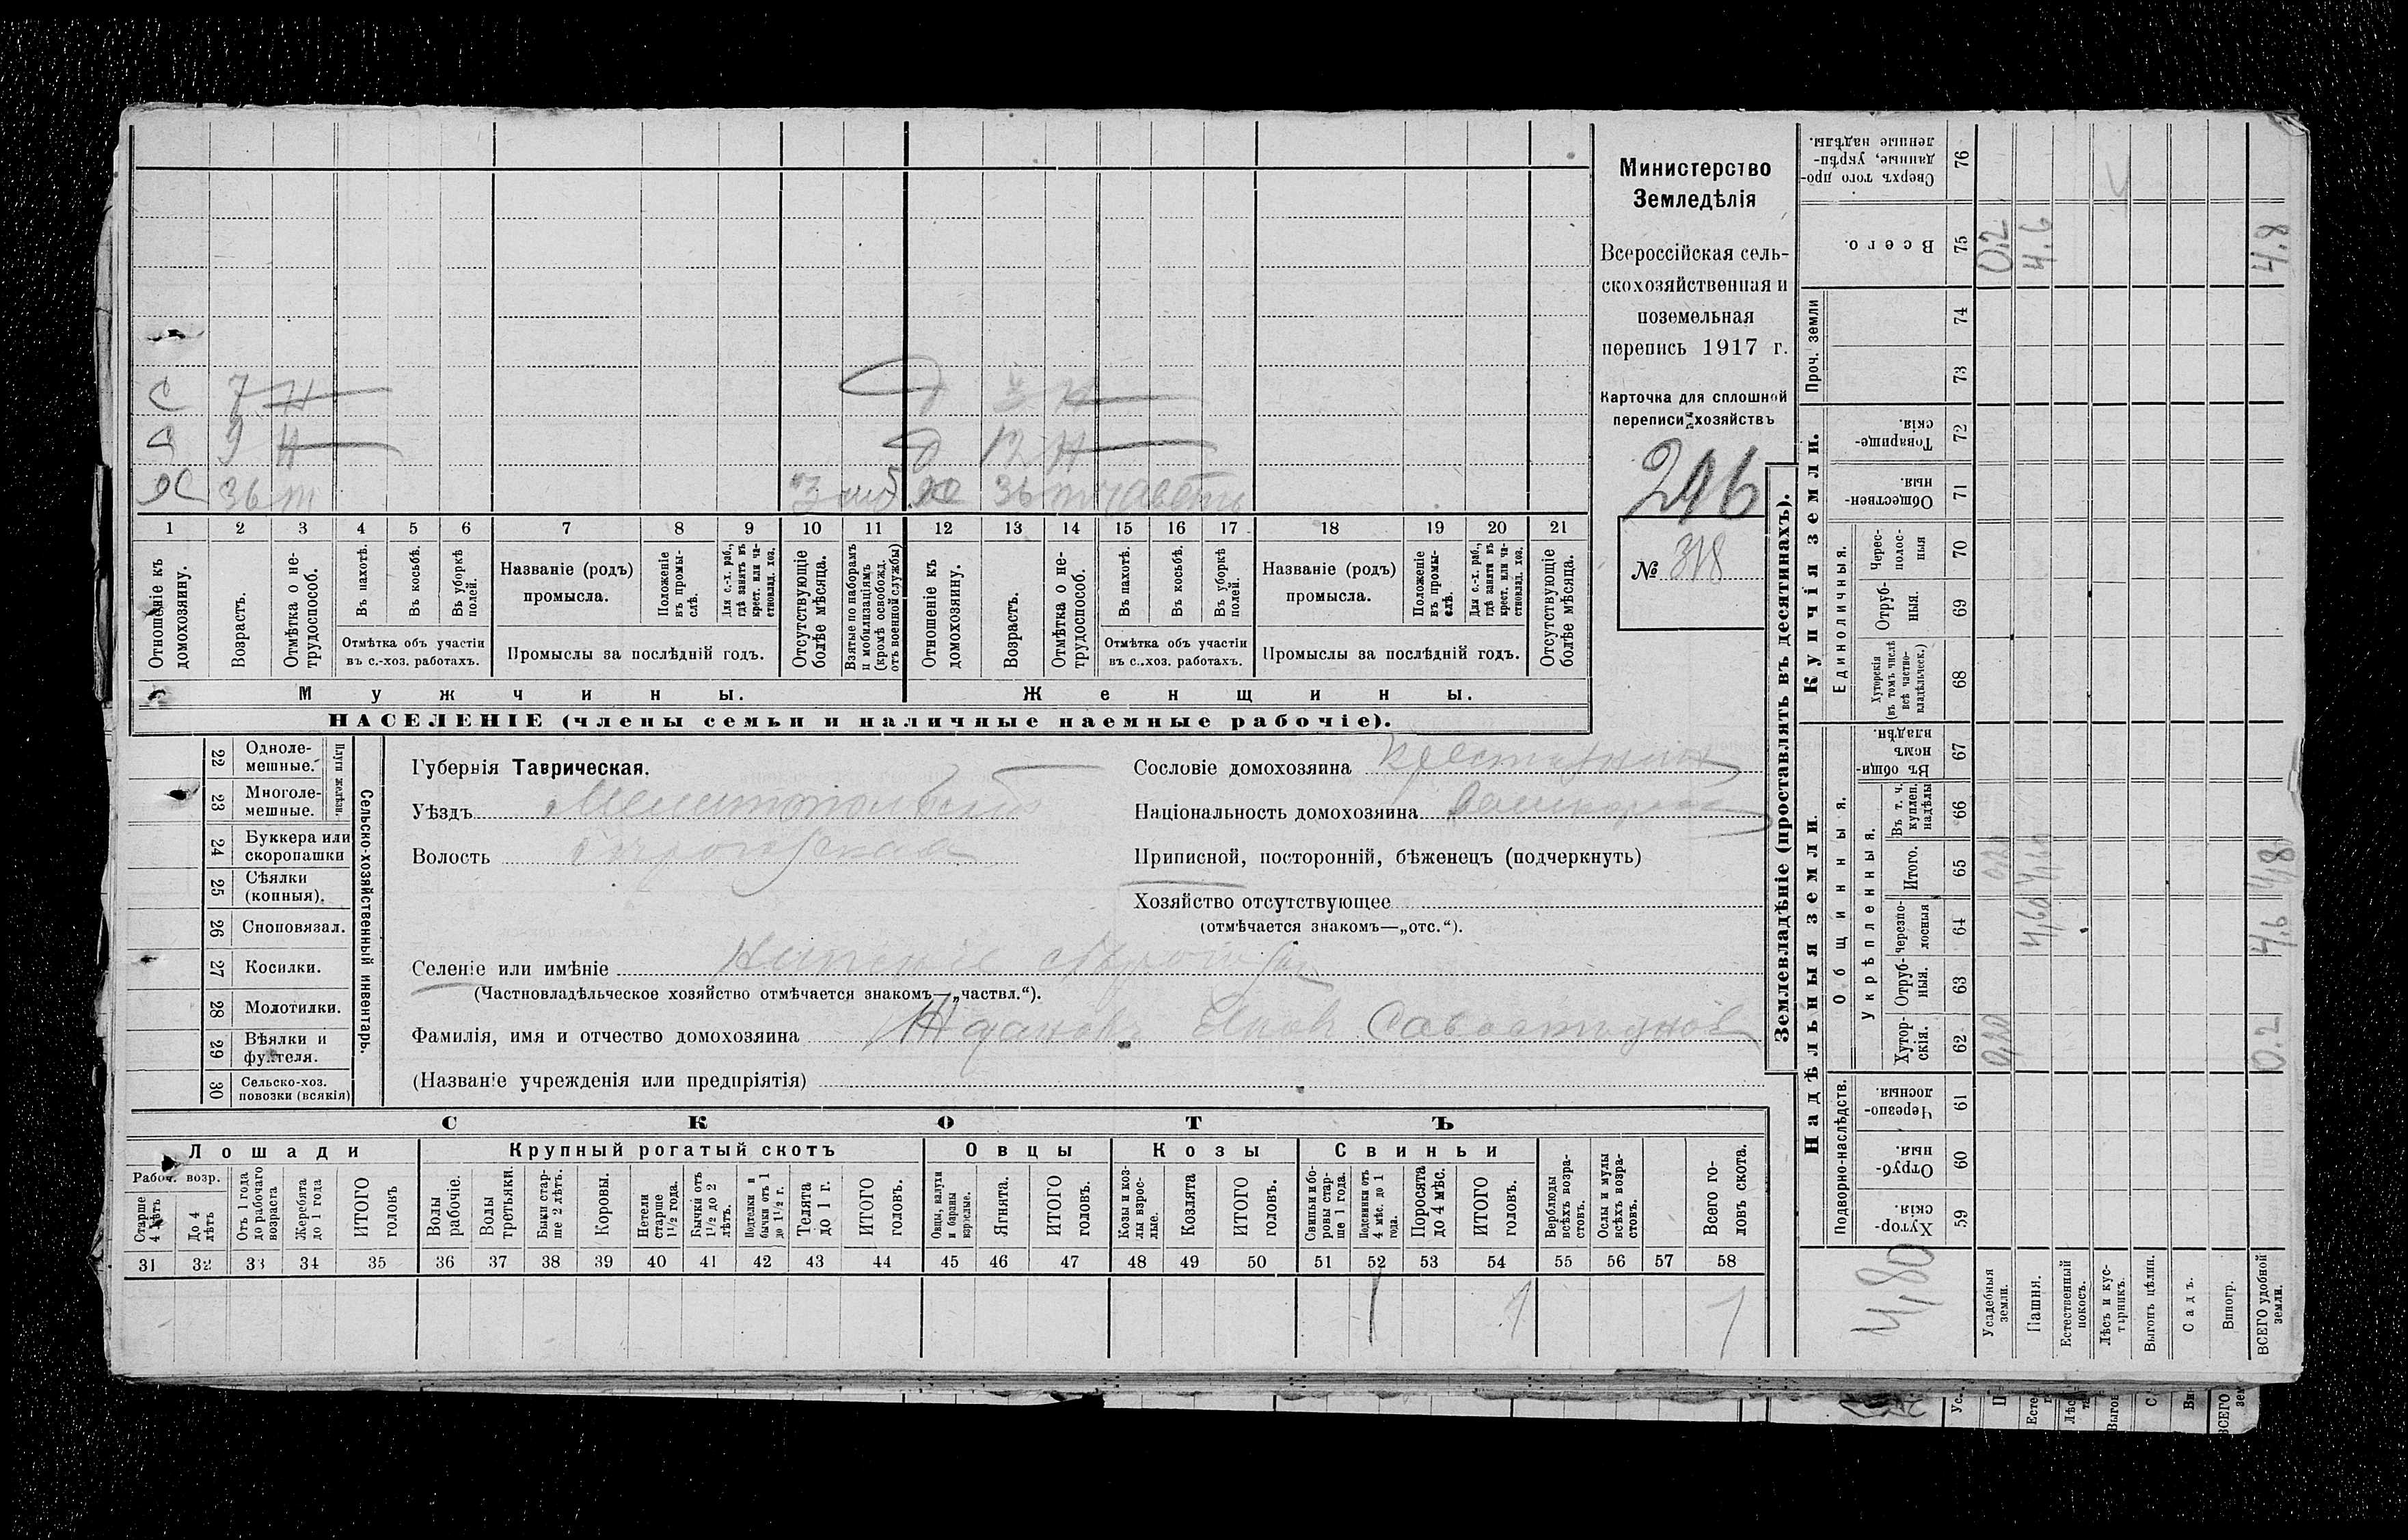 Министерство
Земледѣлія
Всероссійская сель-
скохозяйственная и
поземельная
перепись 1917 г.
Карточка для сплошной
переписи хозяйствъ
216
№ 318
С 7 Н
Д 3 Н
С 9 Н
Д 12 Н
Х 36 т
Х 36 т
1 2 3 4 5 6 7 8 9 10 11 12 13 14 15 16 17 18 19 20 21
Отношеніе къ домохозяину.
Возрастъ.
Отмѣтка о не-трудоспособ.
Въ пахотѣ.
Въ косьбѣ.
Въ уборкѣ полей.
Отмѣтка объ участіи
въ с.-хоз. работахъ.
Названіе (родъ)
промысла.
Положеніе въ промы-слѣ.
Для с.-х. раб., гдѣ занятъ въ крест. или ча-стновлад. хоз.
Промыслы за послѣдній годъ.
Отсутствующіе болѣе мѣсяца.
Взятые по наборамъ и мобилизаціямъ (кромѣ освобожд. отъ военной службы)
Отношеніе къ домохозяину.
Возрастъ.
Отмѣтка о не-трудоспособ.
Въ пахотѣ.
Въ косьбѣ.
Въ уборкѣ полей.
Отмѣтка объ участіи
въ с..хоз. работахъ.
Названіе (родъ)
промысла.
Положеніе въ промы-слѣ.
Для с.-х. раб., гдѣ занята въ крест. или ча-стновлад. хоз.
Промыслы за послѣдній годъ.
Отсутствующіе болѣе мѣсяца.
Мужчины.
Женщины.
НАСЕЛЕНІЕ (члены семьи и наличные наемные рабочіе).
22 Одноле-мешные.
23 Многоле-мешные.
Плуги желѣзн.
24 Буккера или скоропашки
25 Сѣялки (конныя).
26 Сноповязал.
27 Косилки.
28 Молотилки.
29 Вѣялки и фухтеля.
30 Сельско-хоз. повозки (всякія)
Сельско-хозяйственный инвентарь.
Губернія Таврическая.
Уѣздъ Мелитопольскій
Волость
Селеніе или имѣніе
(Частновладѣльческое хозяйство отмѣчается знакомъ—„частвл.“).
Фамилія, имя и отчество домохозяина
(Названіе учрежденія или предпріятія)
Сословіе домохозяина крестьянинъ
Національность домохозяина
Приписной, посторонній, бѣженецъ (подчеркнуть)
Хозяйство отсутствующее
(отмѣчается знакомъ—„отс.“).
СКОТЪ
Лошади
Крупный рогатый скотъ
Овцы
Козы
Свиньи
Рабоч. возр.
Старше 4 лѣтъ
До 4 лѣтъ
Отъ 1 года до рабочаго возраста
Жеребята до 1 года
ИТОГО головъ
Волы рабочіе.
Волы третьяки.
Быки стар-ше 2 лѣтъ.
Коровы.
Нетели старше 1½ года.
Бычки отъ 1½ до 2 лѣтъ.
Подтелки и бычки отъ 1 до 1½ г.
Телята до 1 г.
ИТОГО головъ.
Овцы, валухи и бараны взрослые.
Ягнята.
ИТОГО головъ.
Козы и коз-лы взрос-лые.
Козлята
ИТОГО головъ.
Свиньи и бо-ровы стар-ше 1 года.
Подсвинки отъ 4 мѣс. до 1 года.
Поросята до 4 мѣс.
ИТОГО головъ.
Верблюды всѣхъ возра-стовъ.
Ослы и мулы всѣхъ возра-стовъ.
Всего го-ловъ скота.
31 32 33 34 35 36 37 38 39 40 41 42 43 44 45 46 47 48 49 50 51 52 53 54 55 56 57 58
1 1 1
Землевладѣніе (проставлять въ десятинахъ).
Надѣльныя земли
Купчія земли.
Проч. земли
Подворно-наслѣдств.
Общинныя.
Укрѣпленныя.
Единоличныя.
Хутор-скія. 59
Отруб-ныя. 60
Черезпо-лосныя. 61
Хутор-скія. 62
Отруб-ныя. 63
Черезпо-лосныя 64
Итого. 65
Въ т. ч. куплен. надѣлы 66
Въ общи-номъ владѣн. 67
Хуторскія (въ томъ числѣ всѣ частно-владѣльческ.) 68
Отруб-ныя. 69
Черес-полос-ныя 70
Обществен-ныя. 71
Товарище-скія. 72
73
74
Всего. 75
Сверхъ того про-данные, укрѣп-ленные надѣлы. 76
4,80
Усадебныя земли. 0,20 0,20 0.2
Пашня. 4,60 4,60 4.6
Естественный покосъ.
Лѣсъ и кус-тарникъ.
Выгонъ цѣлин.
Садъ.
Виногр.
ВСЕГО удобной земли. 0.2 4,6 4,8 4.8